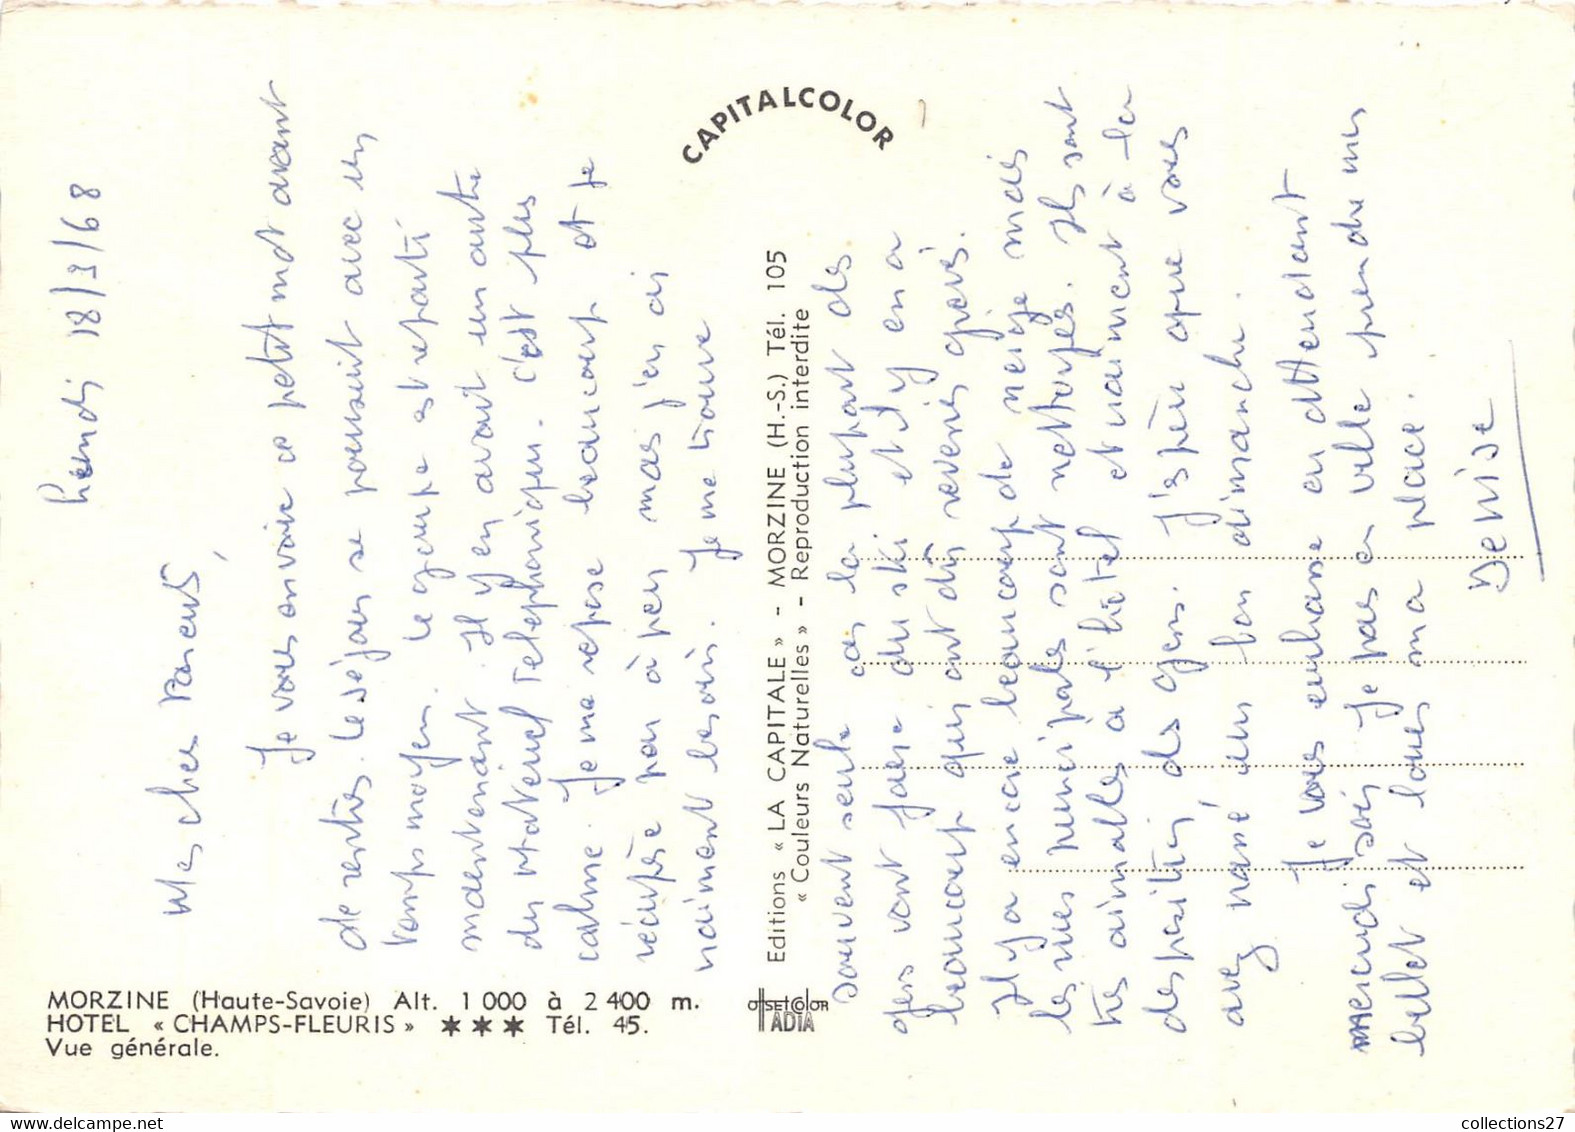 MORZINE (Haute-Savoie) Alt. 1 000 à 2 400 m.
HOTEL « CHAMPS-FLEURIS » ★★★ Tél. 45.
Vue générale.
CAPITALCOLOR
Editions « LA CAPITALE » - MORZINE (H.-S.) Tél. 105
« Couleurs Naturelles » - Reproduction interdite
OFFSETCOLOR
IADIA
Lundi 18/3/68
Mes chers Parents,
Je vous envoie ce petit mot avant
de rentrer. Le séjour se poursuit avec un
temps moyen. Le groupe est reparti
maintenant. Il y en avait un autre
du Téléphonique. c'est plus
calme. Je me repose beaucoup et je
récupère peu à peu mais j'en ai
vraiment besoin. Je me trouve
souvent seule car la plupart des
gens vont faire du ski et il y en a
beaucoup qui ont dû revenir après.
Il y a encore beaucoup de neige mais
les rues municipales sont nettoyées. Ils sont
très aimables à l'hôtel et vraiment à la
disposition des gens. J'espère que vous
avez passé un bon dimanche.
Je vous embrasse en attendant
mercredi soir. Je pars en ville prendre mon
billet et louer ma place.
Denise
collections27